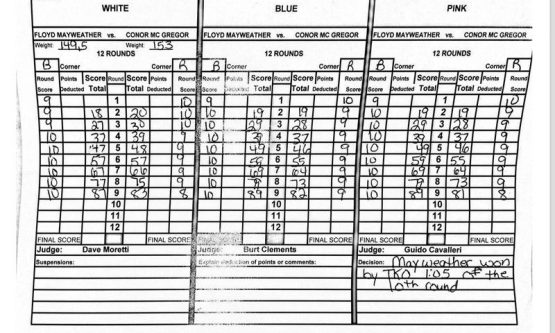 WHITE
BLUE
PINK
FLOYD MAYWEATHER vs. CONOR MC GREGOR
FLOYD MAYWEATHER vs. CONOR MC GREGOR
FLOYD MAYWEATHER vs. CONOR MC GREGOR
Weight 149.5 Weight 153
12 ROUNDS
12 ROUNDS
12 ROUNDS
B Corner Corner R
B Corner Corner R
B Corner Corner R
Round Score Points Deducted Score Total Round Score Total Points Deducted Round Score
Round Score Points Deducted Score Total Round Score Total Points Deducted Round Score
Round Score Points Deducted Score Total Round Score Total Points Deducted Round Score
9 1 10
9 18 2 20 10
9 27 3 30 10
10 37 4 39 9
10 47 5 48 9
10 57 6 57 9
10 67 7 66 9
10 77 8 75 9
10 87 9 83 8
10
11
12
9 1 10
10 19 2 19 9
10 29 3 28 9
10 39 4 37 9
10 49 5 46 9
10 59 6 55 9
10 69 7 64 9
10 79 8 73 9
10 89 9 82 9
10
11
12
9 1 10
10 19 2 19 9
10 29 3 28 9
10 39 4 37 9
10 49 5 46 9
10 59 6 55 9
10 69 7 64 9
10 79 8 73 9
10 89 9 81 8
10
11
12
FINAL SCORE FINAL SCORE
FINAL SCORE
FINAL SCORE FINAL SCORE
Judge: Dave Moretti
Judge: Burt Clements
Judge: Guido Cavalleri
Suspensions:
Explain deduction of points or comments:
Decision: Mayweather won
by TKO 1:05 of the
10th round